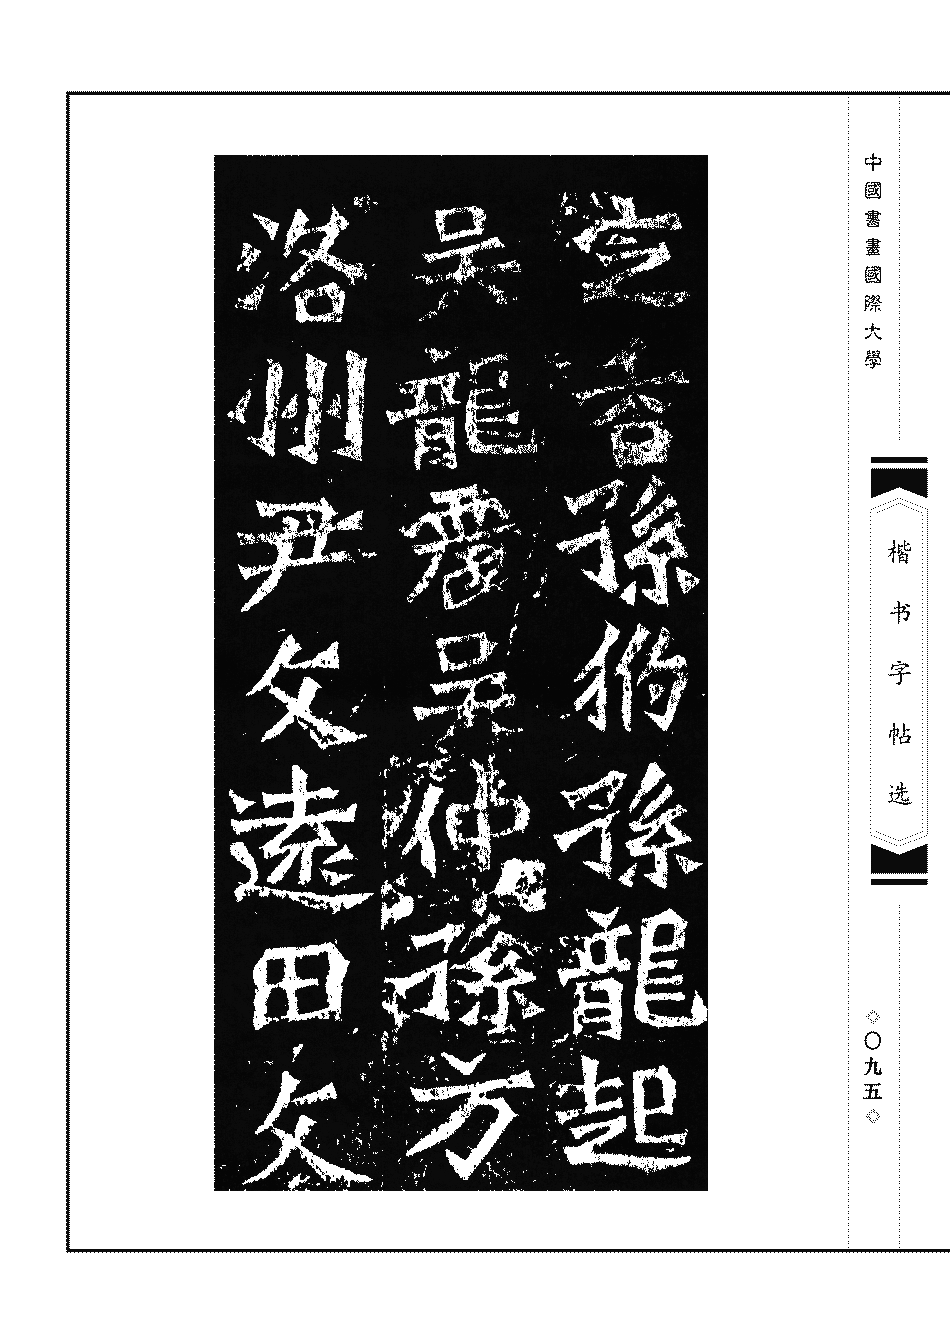 中國書畫國際大學
楷书字帖选
◇〇九五◇
孫狗孫龍起
吳龍吳仲孫方
洛州尹文遠田文